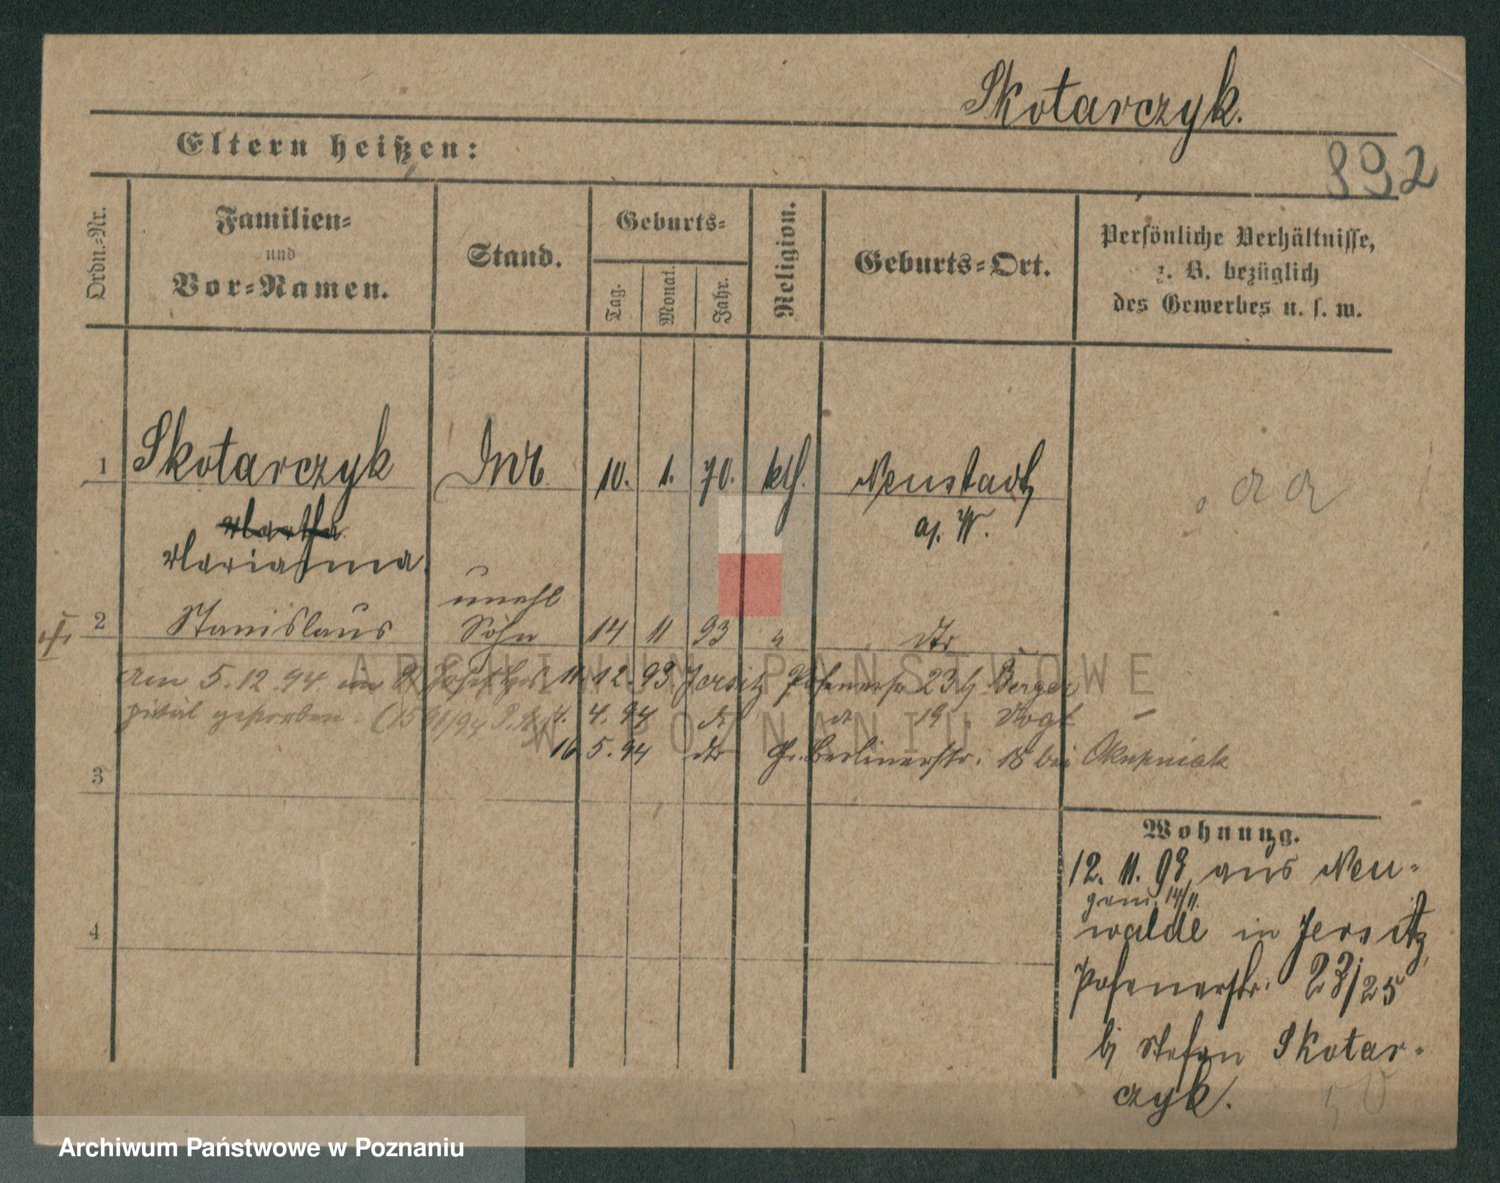 Skotarczyk.
Eltern heißen:
892
Ordn.=Nr.
Familien=
und
Vor=Namen.
Stand.
Geburts=
Tag.
Monat.
Jahr.
Religion.
Geburts=Ort.
Persönliche Verhältnisse,
z. B. bezüglich
des Gewerbes u. s. w.
1 Skotarczyk 10. 1. 70. kth. Neustadt
a/. W.
Martha
Marianna.
unehl
2 Stanislaus Sohn 14 11 93 " dto
Am 5.12.94 im 11.12.93 Jersitz Posenerstr 23 bj Berger
pital gestorben 4. 4. 94 do do 19 Vogt
16 5. 94 dto Gr. Berlinerstr. 18 bei Okupniak
3
4
Wohnung.
12. 11. 93 aus Neu-
gem. 14/11.
walde in Jersitz
Posenerstr. 23/25
bj Stefan Skotar-
czyk.
ARCHIWUM PAŃSTWOWE
W POZNANIU
Archiwum Państwowe w Poznaniu